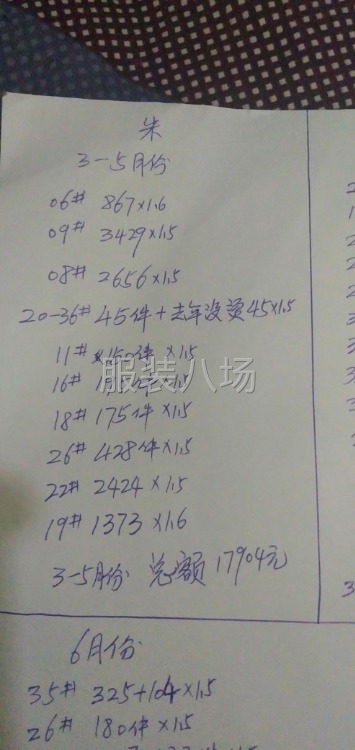 朱
3-5月份
06# 867×1.6
09# 3429×1.5
08# 2656×1.5
20-36# 45件+去年没烫45×1.5
11# 150件×1.5
服装八场
16# ×1.5
18# 175件×1.5
26# 428件×1.5
22# 2424×1.5
19# 1373×1.6
3-5月份 总额 17904元
6月份
35# 325+104×1.5
26# 180件×1.5